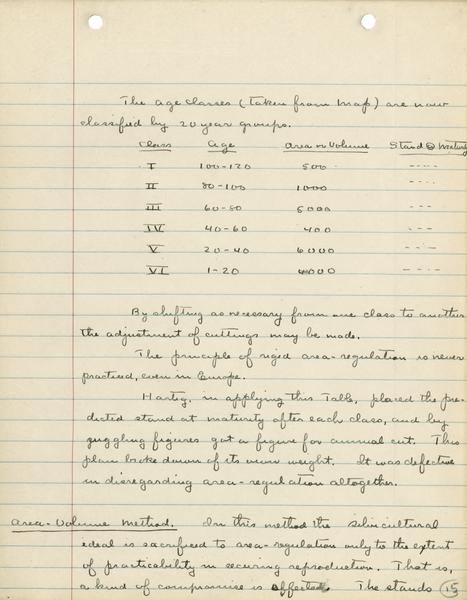 The age classes (taken from map) are now
classified by 20 year groups.
Class Age Area or Volume Stand @ Maturity
I 100-120 500 ----
II 80-100 1000 ----
III 60-80 5000 ---
IV 40-60 400 ---
V 20-40 6000 ----
VI 1-20 4000 ----
By shifting as necessary from one class to another
the adjustment of cuttings may be made.
The principle of rigid area-regulation is never
practiced, even in Europe.
Hartig, in applying this Table, placed the pre-
dicted stand at maturity after each class, and by
juggling figures got a figure for annual cut. This
plan broke down of its own weight. It was defective
in disregarding area-regulation altogether.
Area-Volume Method. In this method the silvicultural
ideal is sacrificed to area-regulation only to the extent
of practicability in securing reproduction. That is,
a kind of compromise is effected. The stands 15